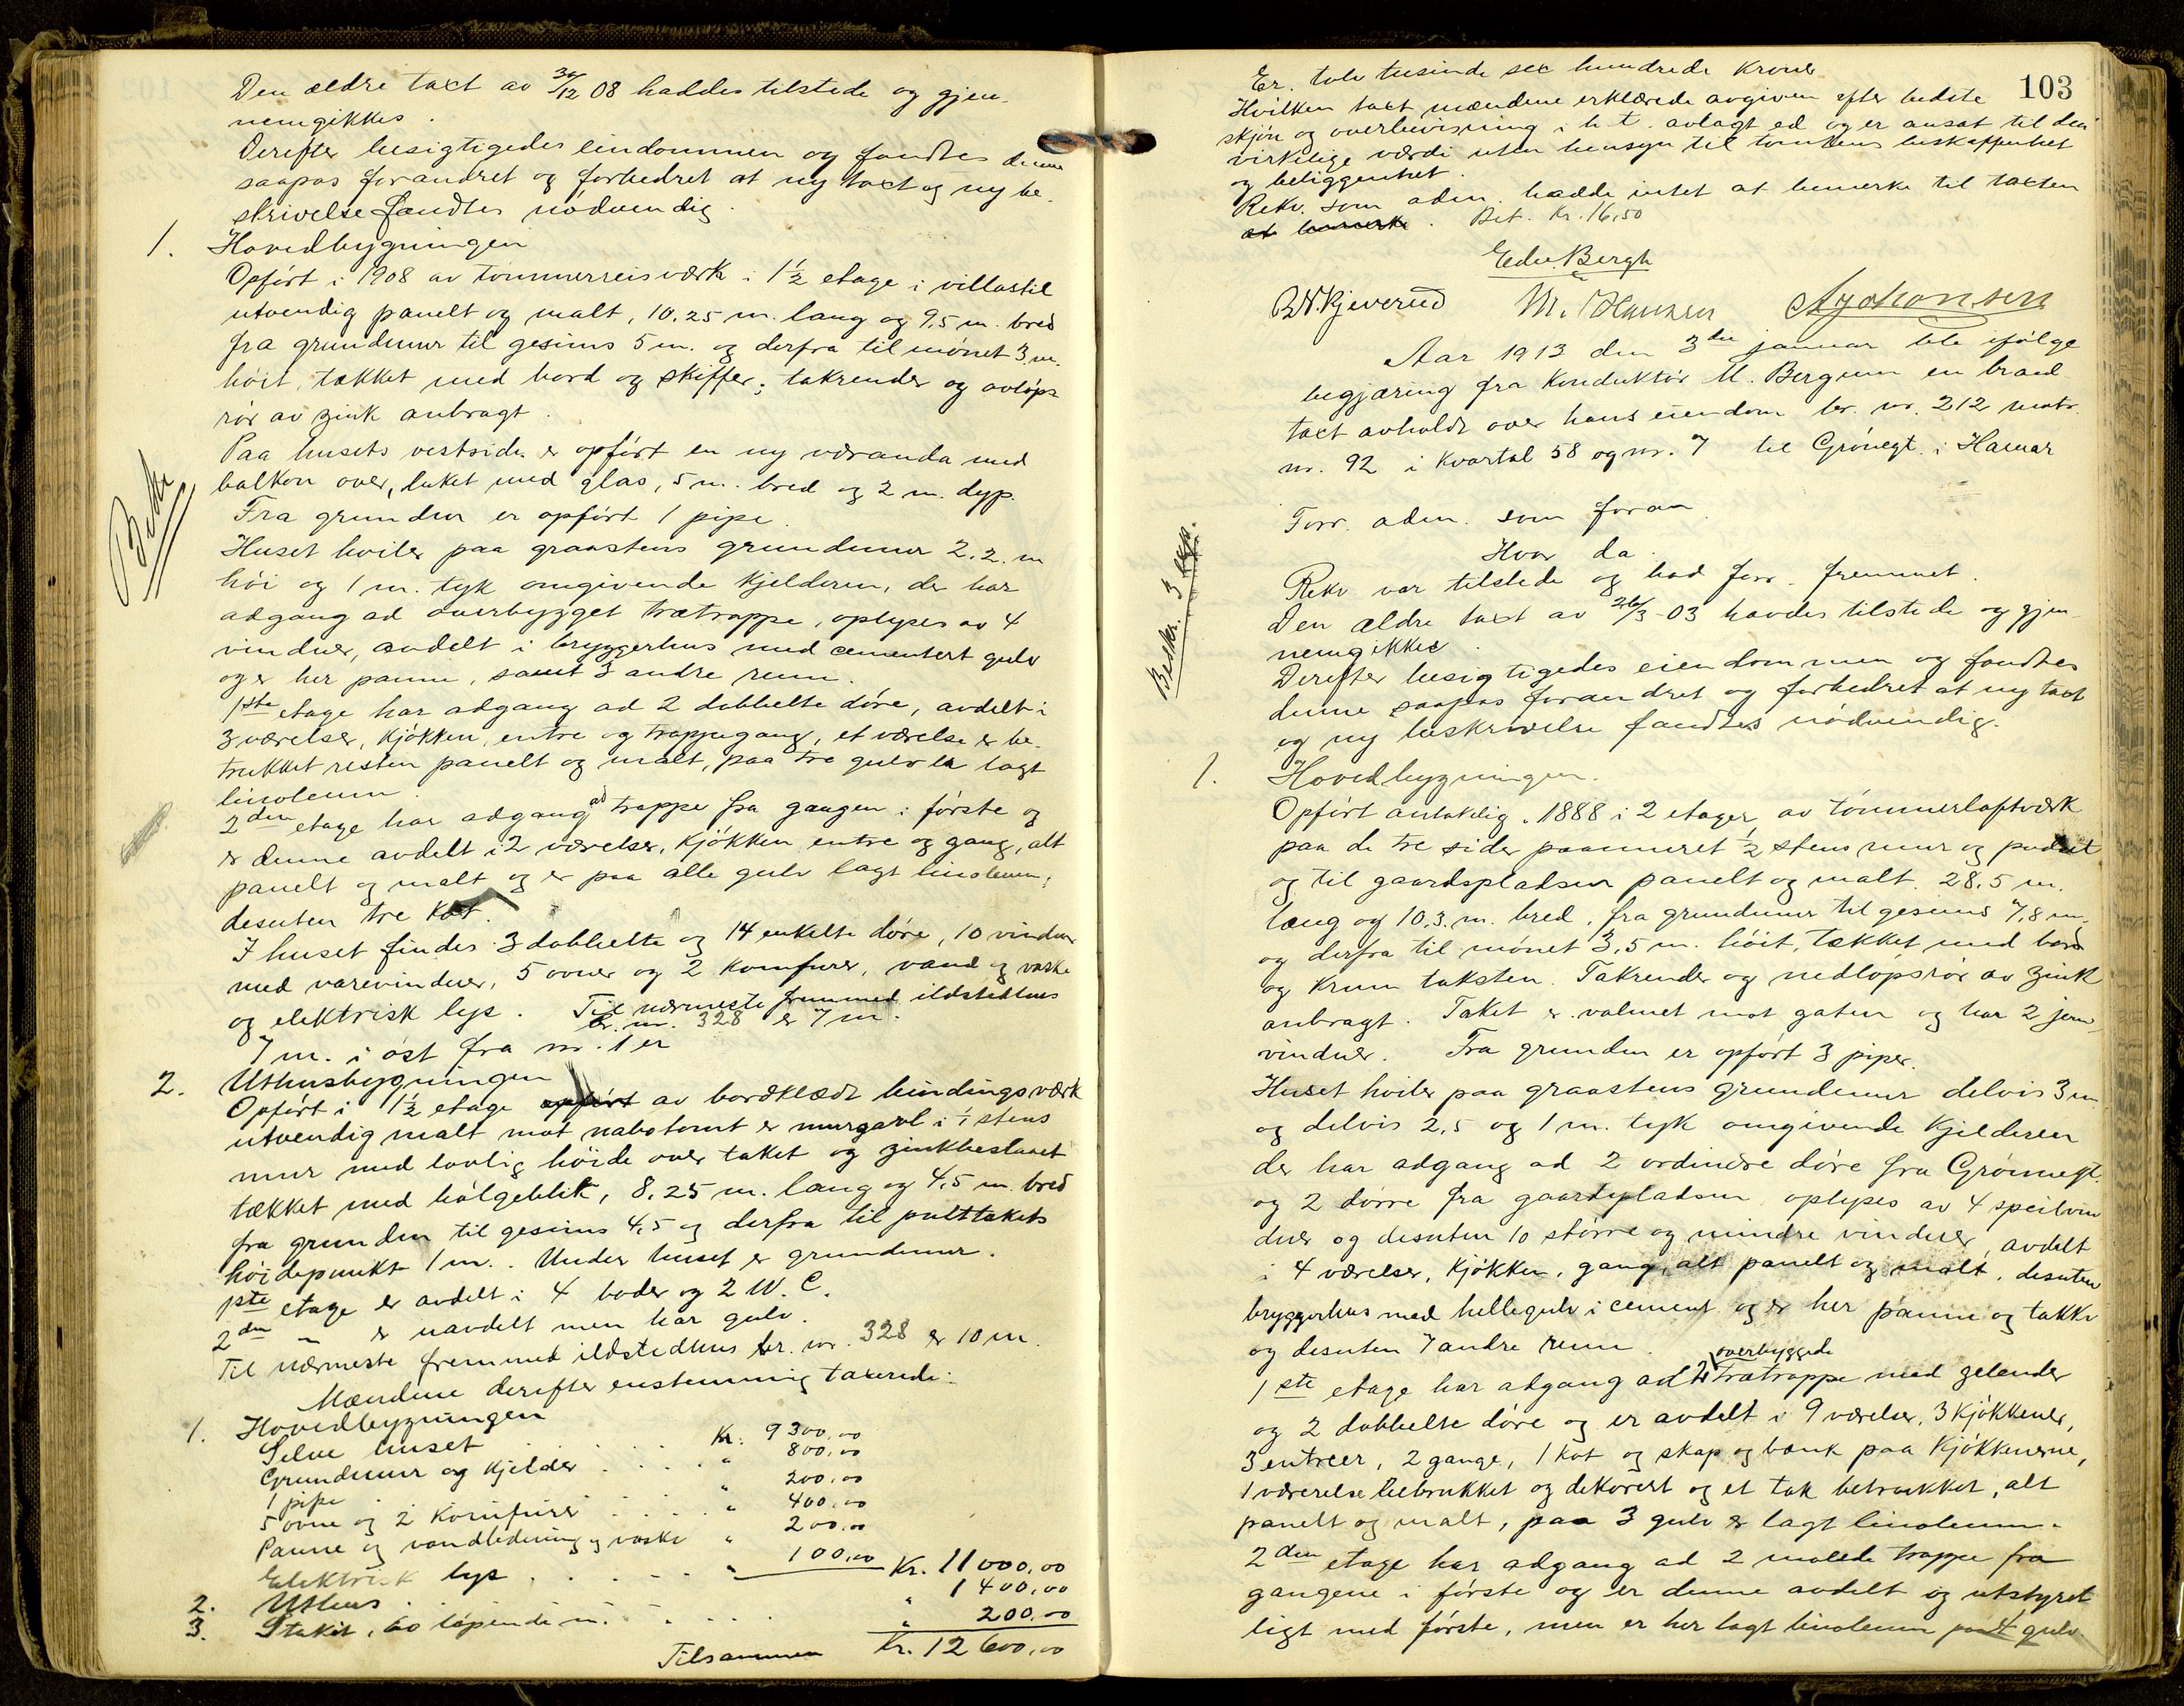 Den ældre taxt av 30/12 08 haddes tilstede og gjen-
nemgikkes.
Derefter besigtigedes eindommen og fandtes denne
saapas forandret og forbedret at ny taxt og ny be-
skrivelse fandtes nødvendig.
1. Hovedbygningen
Opført i 1908 av tømmerreisværk i 1½ etage i villastil
utvendig panelt og malt, 10,25 m. lang og 9,5 m. bred
fra grundmur til gesims 5 m. og derfra til mønet 3 m.
høit, tækket med bord og skiffer; takrender og avløps
rør av zink anbragt.
Paa husets vestside er opført en ny veranda med
balkon over, lukket med glas, 5 m. bred og 2 m. dyp.
Fra grunden er opført 1 pipe.
Huset hviler paa graastens grundmur 2,2 m
høi og 1 m. tyk omgivende kjelderen, der har
adgang ad overbygget trætrappe, oplyses av 4
vinduer, avdelt i bryggerhus med cementert gulv
og er her panne, samt 3 andre rum.
1ste etage har adgang ad 2 dobbelte døre, avdelt i
3 værelser, kjøkken, entre og trappegang, et værelse er be-
trukket resten panelt og malt, paa tre gulv er lagt
linoleum.
2den etage har adgang ad trappe fra gangen i første og
er denne avdelt i 2 værelser, kjøkken entre og gang, alt
panelt og malt og er paa alle gulv lagt linoleum;
desuten tre kot.
I huset findes 3 dobbelte og 14 enkelte døre, 10 vinduer
med varevinduer, 5 ovner og 2 komfurer, vand og vaske
og elektrisk lys. Til nærmeste fremmed ildstedhus
br. nr. 328 er 7 m.
7 m. i øst fra nr. 1 er
2. Uthusbygningen
Opført i 1½ etage opført av bordklædt bindingsværk
utvendig malt mot nabotomt er murgavl i 1/1 stens
mur med lovlig høide over taket og zinkbeslaaet
tækket med bølgeblik, 8,25 m. lang og 4,5 m. bred
fra grunden til gesims 4,5 og derfra til pulttakets
høidepunkt 1 m. Under huset er grundmur.
1ste etage er avdelt i 4 boder og 2 W. C.
2den " er uavdelt men har gulv.
Til nærmeste fremmed ildstedhus br. nr. 328 er 10 m.
Mændene derefter enstemmig taxerede:
1. Hovedbygningen
Selve huset . . . . . Kr. 9300,00
Grundmur og kjelder . . . . " 800,00
1 pipe . . . . . " 200,00
5 ovne og 2 komfurer . . . . " 400,00
Panne og vandledning og vaske " 200,00
Elektrisk lys . . . . . " 100,00 Kr. 11000,00
2. Uthus . . . . . " 1400,00
3. Stakit, 60 løpende m. . . . . " 200,00
Tilsammen Kr. 12600,00
Beskr.
103
Er. tolv tusinde sex hundrede kroner
Hvilken taxt mændene erklærede avgiven efter bedste
skjøn og overbevisning i h. t. avlagt ed og er ansat til den
virkelige værdi uten hensyn til tomtens beskaffenhet
og beliggenhet.
Rekv. som adm. hadde intet at bemerke til taxten
at bemerke. Bet. Kr. 16,50
Edv. Bergh
B. N. Kjeverud M. Hansen A. Johansen
Aar 1913 den 3die januar ble ifølge
begjæring fra konduktør M. Bergum en brand
taxt avholdt over hans eiendom br. nr. 212 matr.
nr. 92 i kvartal 58 og nr. 7 til Grønegt. i Hamar
Forr. adm. som foran.
Hvor da
Rekv. var tilstede og bad forr. fremmet.
Den ældre taxt av 26/3-03 havdes tilstede og gjen-
nemgikkes.
Derefter besigtigedes eiendommen og fandtes
denne saapas forandret og forbedret at ny taxt
og ny beskrivelse fandtes nødvendig.
Beskr. 3
1. Hovedbygningen.
Opført antakelig 1888 i 2 etager av tømmerlaftværk
paa de tre sider paamuret ½ stens mur og pudset
og til gaardspladsen panelt og malt. 28,5 m.
lang og 10,3 m. bred, fra grundmur til gesims 7,8 m.
og derfra til mønet 3,5 m. høit, tækket med bord
og krum taksten. Takrender og nedløpsrør av zink
anbragt. Taket er valmet mot gaten og har 2 jern-
vinduer. Fra grunden er opført 3 piper.
Huset hviler paa graastens grundmur delvis 3 m
og delvis 2,5 og 1 m. tyk omgivende kjelderen
der har adgang ad 2 ordinære døre fra Grønnegt.
og 2 dørre fra gaardspladsen oplyses av 4 speilvin
duer og desuten 10 større og mindre vinduer, avdelt
i 4 værelser, kjøkken, gang, alt panelt og malt, desuten
bryggerhus med hellegulv i cement og er her panne og takke
og desuten 7 andre rum.
1ste etage har adgang ad 2 overbyggede trætrappe med gelender
og 2 dobbelte døre og er avdelt i 9 værelser, 3 kjøkkener,
3 entreer, 2 gange, 1 kot og skap og bænk paa kjøkkenerne,
1 værerelse betrukket og dekorert og et tak betrukket, alt
panelt og malt, paa 3 gulv er lagt linoleum.
2den etage har adgang ad 2 malede trappe fra
gangene i første og er denne avdelt og utstyret
ligt med første, men er her lagt linoleum paa 4 gulv